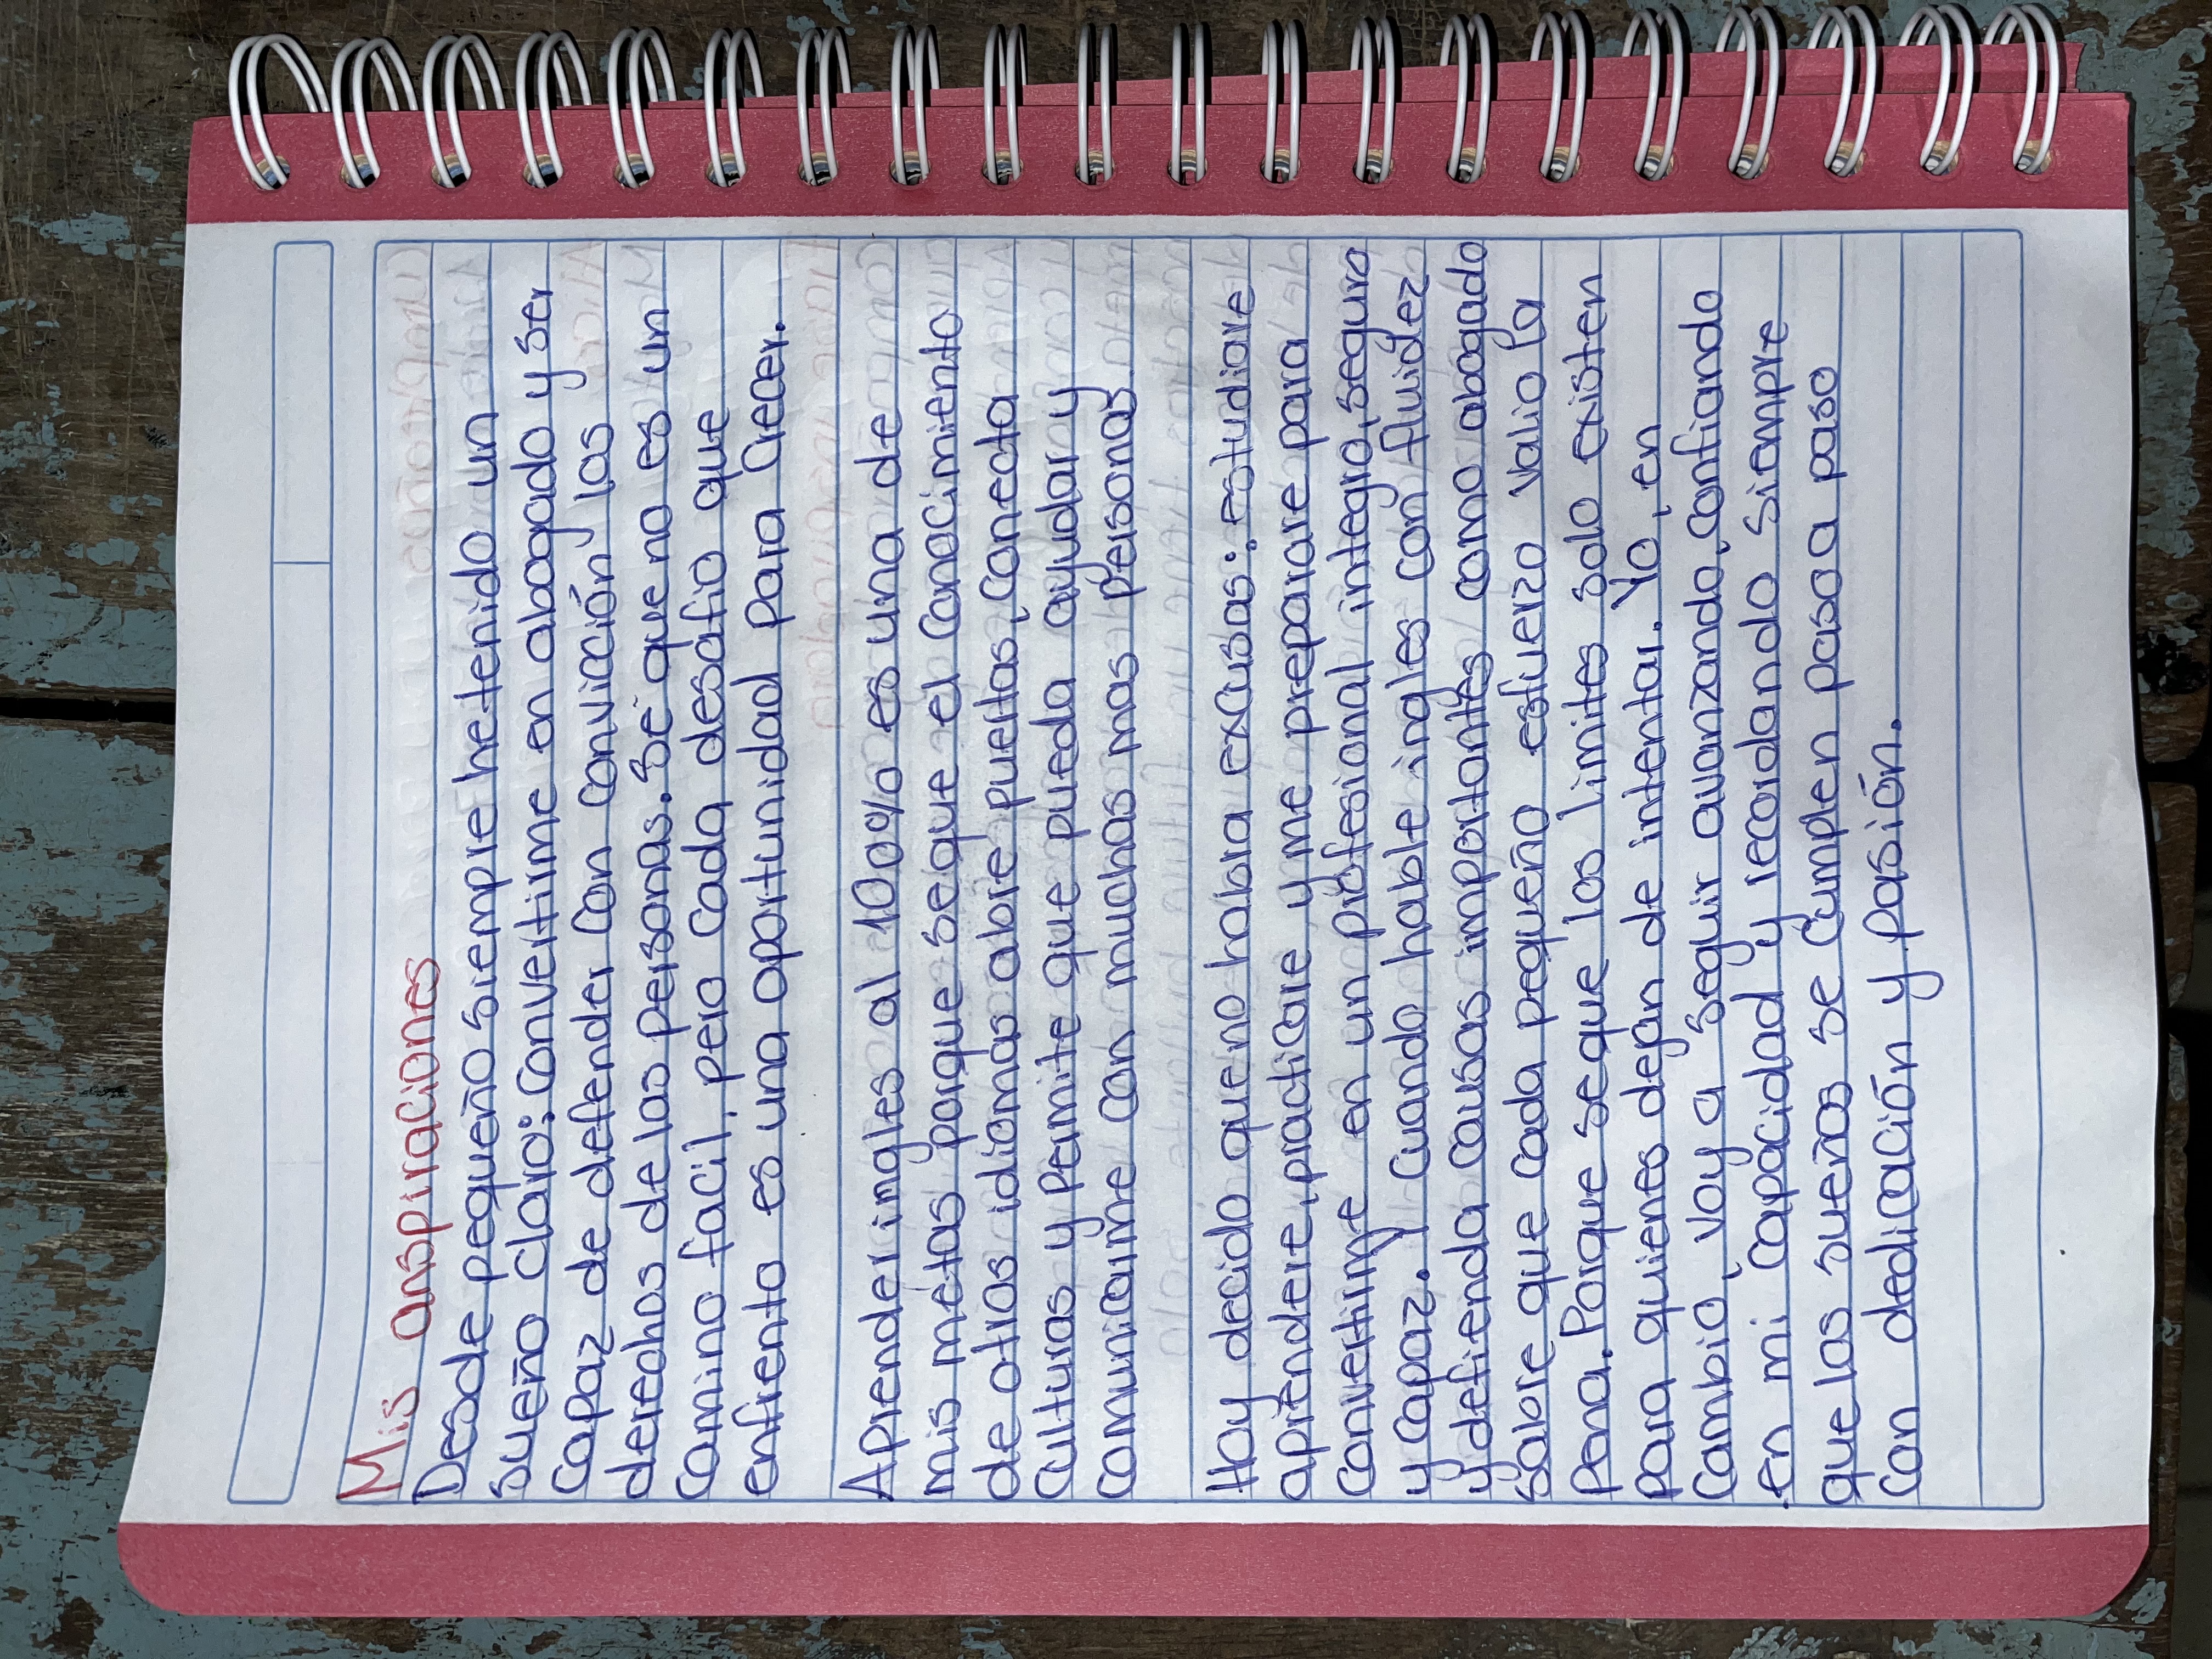 Mis anspiraciones
Desde pequeño siempre hetenido un
sueño claro: convertirme en abogado y ser
capaz de defender con convicción los
derechos de las personas. Sé que no es un
camino facil, pero cada desafio que
enfrento es una oportunidad para crecer.
Aprender ingles al 100% es una de
mis métas porque se que el conocimiento
de otros idiomas abre puertas, conecta
culturas y permite que pueda ayudar y
comunicarme con muchas mas personas.
Hoy decido que no habra excusas: estudiare
aprendere, practicare y me preparare para
convertirme en un profesional integro, seguro
y capaz. Y cuando hable ingles con fluidez
y defienda causas importantes como abogado
sabre que cada pequeño esfuerzo valio la
pena. Porque se que los limites solo existen
para quienes dejan de intentar. Yo, en
cambio, voy a seguir avanzando, confiando
en mi capacidad y recordando siempre
que los sueños se cumplen paso a paso
con dedicación y pasión.